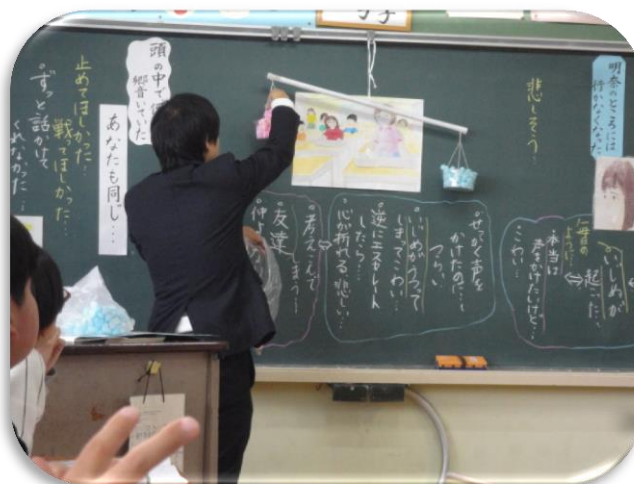 明奈のところには
行かなくなった
いじめが
起こった
毎日の
ように
本当は
声をかけたいけど…
こわい
悲しそう…
せっかく声を
かけたのに…
つらい
いじめがうつって
しまってこわい…
逆にエスカレート
したら…
心が折れる 悲しい…
考えこんで
しまう…
友達
仲よ
頭の中で
響いていた
あなたも同じ…
止めてほしかった…
戦ってほしかった…
ずっと話かけて
くれなかった…